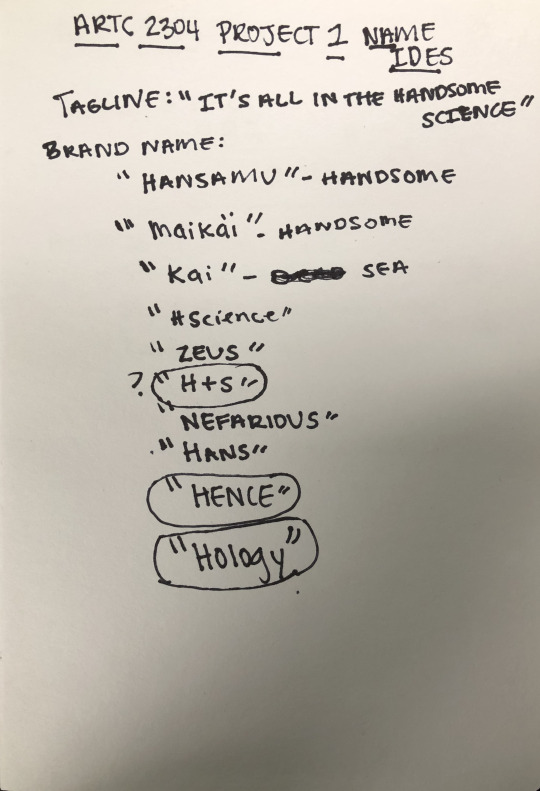 ARTC 2304 PROJECT 1 NAME
IDES
TAGLINE: "IT'S ALL IN THE HANDSOME
SCIENCE"
BRAND NAME:
"HANSAMU" - HANDSOME
"maikäi" - HANDSOME
"Kai" - SEA
"#Science"
"ZEUS"
? "H+S"
"NEFARIOUS"
"HANS"
"HENCE"
"Hology"